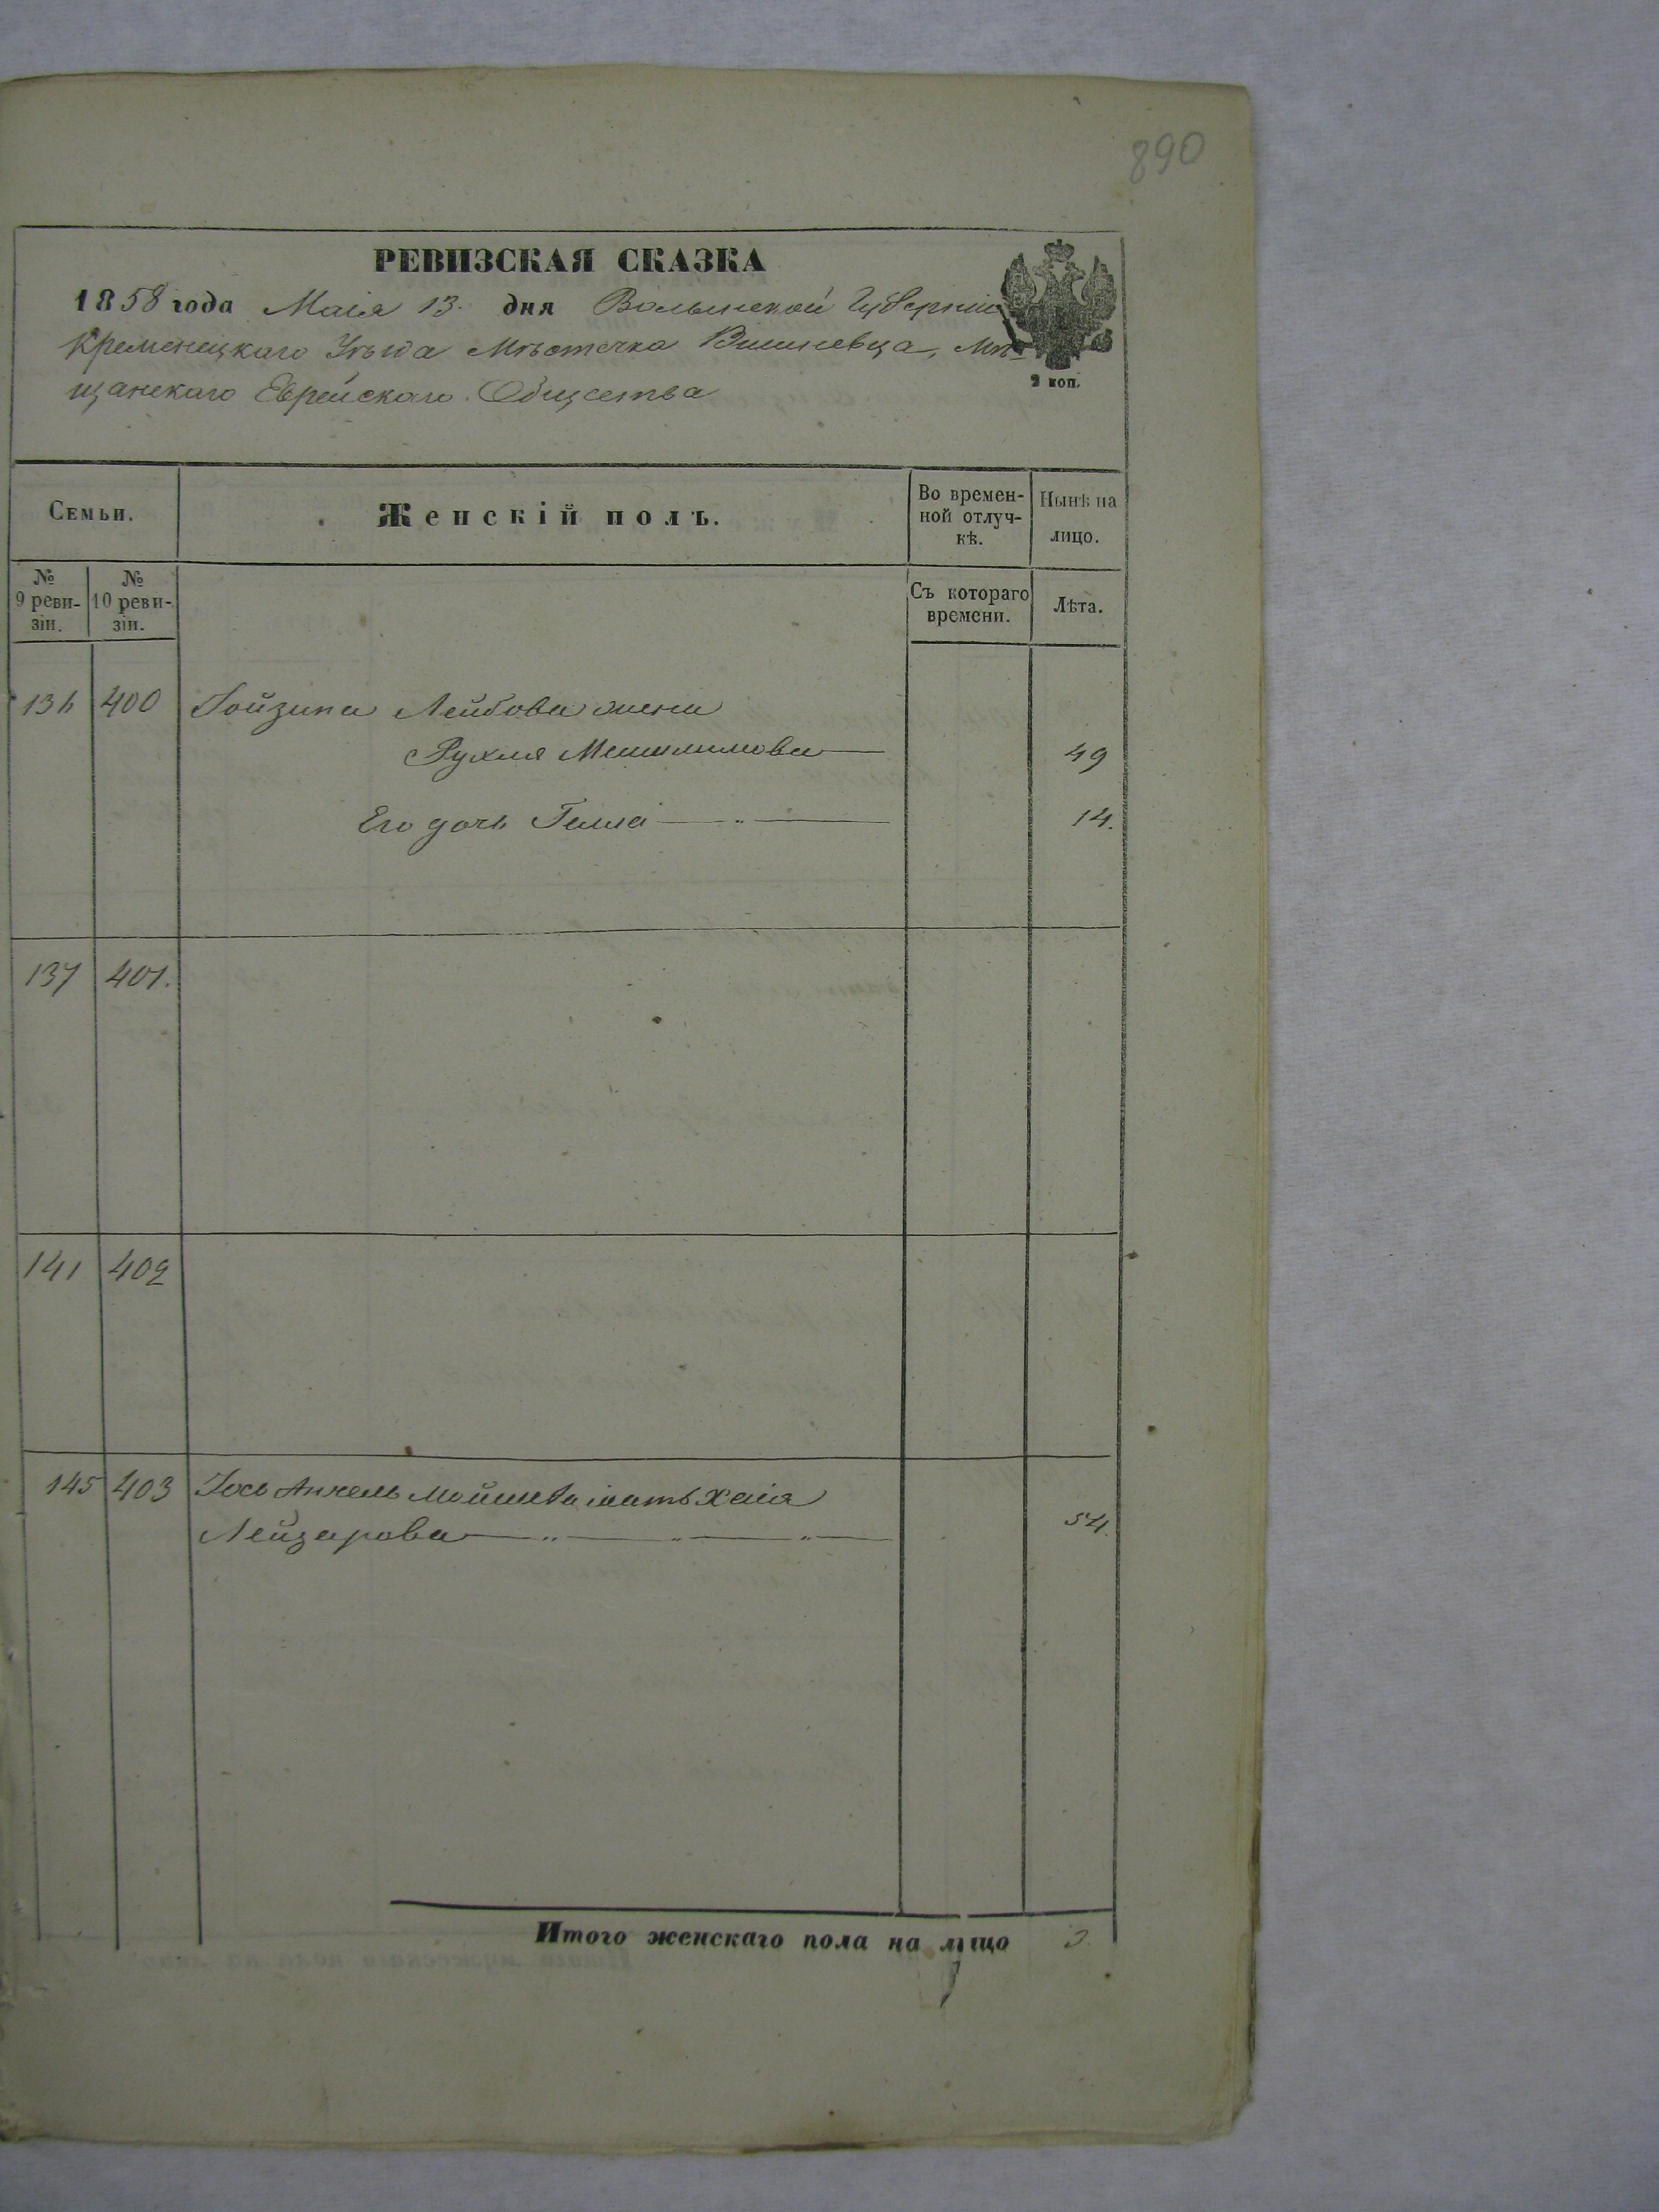 890
РЕВИЗСКАЯ СКАЗКА
1858 года Маія 13. дня Волынской Губерніи
Кременецкаго Уѣзда Мѣстечка Вишневца, Мѣ-
щанскаго Еврейскаго Общества
2 коп.
Семьи.
Женскій полъ.
Во времен-
ной отлуч-
кѣ.
Нынѣ на
лицо.
№
9 реви-
зіи.
№
10 реви-
зіи.
Съ котораго
времени.
Лѣта.
136 400 Лейбова жена
Рухля 49
Его дочь 14.
137 401.
141 402
145 403 Іось Анчель мать Хаія
Лейзерова 54.
Итого женскаго пола на лицо 3.